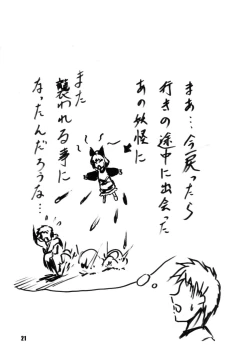 まぁ…今戻ったら
行きの途中に出会った
あの妖怪に
また
襲われる事に
なったんだろうな…
21